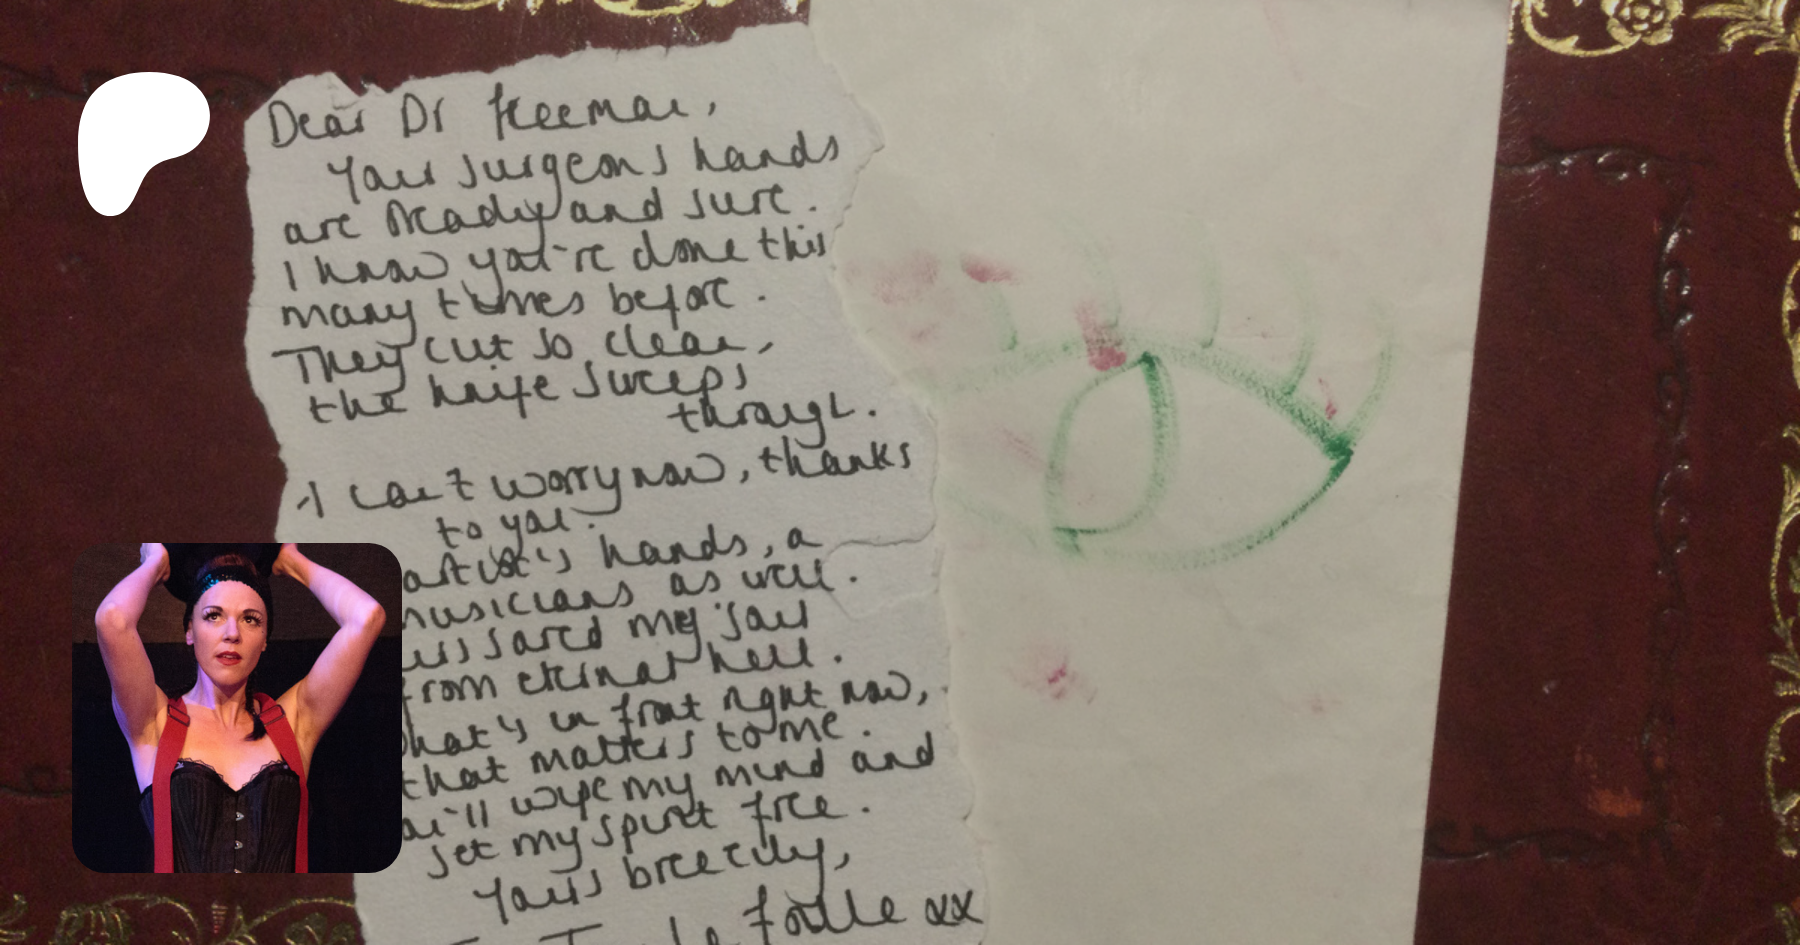 Dear Dr Freeman,
Your surgeons hands
are steady and sure.
I know you've done this
many times before.
They cut so clean,
the knife sweeps
through.
I can't worry now, thanks
to you.
artist's hands, a
musicians as well.
saved my soul
from eternal hell.
what's in front right now,
that matters to me.
You'll wipe my mind and
set my spirit free.
Yours breezily,